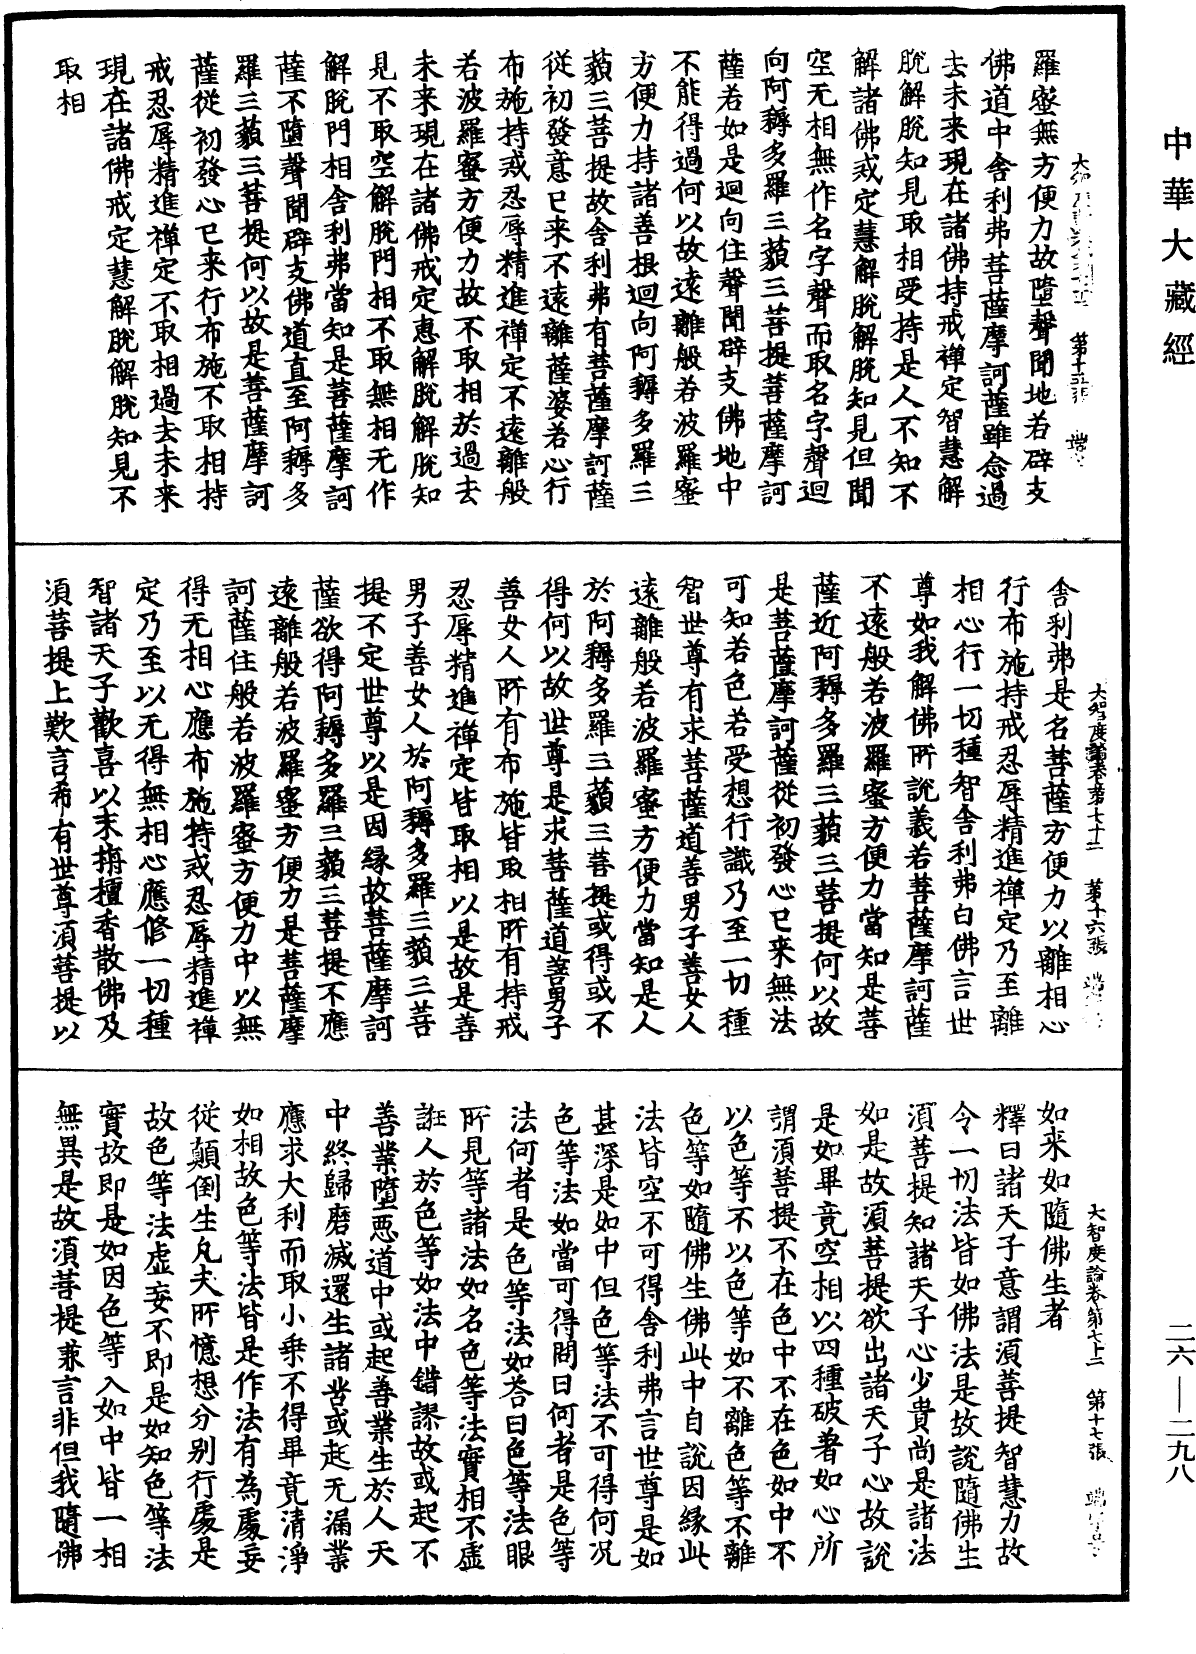 中華大藏經
二六—二九八
第十五張
羅蜜無方便力故墮聲聞地若辟支
佛道中舍利弗菩薩摩訶薩雖念過
去未来現在諸佛持戒禪定智慧解
脫解脫知見取相受持是人不知不
解諸佛戒定慧解脫解脫知見但聞
空无相無作名字聲而取名字聲迴
向阿耨多羅三藐三菩提菩薩摩訶
薩若如是迴向住聲聞辟支佛地中
不能得過何以故遠離般若波羅蜜
方便力持諸善根迴向阿耨多羅三
藐三菩提故舍利弗有菩薩摩訶薩
從初發意已来不遠離薩婆若心行
布施持戒忍辱精進禪定不遠離般
若波羅蜜方便力故不取相於過去
未来現在諸佛戒定惠解脫解脫知
見不取空解脫門相不取無相无作
解脫門相舍利弗當知是菩薩摩訶
薩不墮聲聞辟支佛道直至阿耨多
羅三藐三菩提何以故是菩薩摩訶
薩從初發心已来行布施不取相持
戒忍辱精進禪定不取相過去未来
現在諸佛戒定慧解脫解脫知見不
取相
大智度論卷第七十二 第十六張
舍利弗是名菩薩方便力以離相心
行布施持戒忍辱精進禪定乃至離
相心行一切種智舍利弗白佛言世
尊如我解佛所說義若菩薩摩訶薩
不遠般若波羅蜜方便力當知是菩
薩近阿耨多羅三藐三菩提何以故
是菩薩摩訶薩從初發心已来無法
可知若色若受想行識乃至一切種
智世尊有求菩薩道善男子善女人
遠離般若波羅蜜方便力當知是人
於阿耨多羅三藐三菩提或得或不
得何以故世尊是求菩薩道善男子
善女人所有布施皆取相所有持戒
忍辱精進禪定皆取相以是故是善
男子善女人於阿耨多羅三藐三菩
提不定世尊以是因緣故菩薩摩訶
薩欲得阿耨多羅三藐三菩提不應
遠離般若波羅蜜方便力是菩薩摩
訶薩住般若波羅蜜方便力中以無
得无相心應布施持戒忍辱精進禪
定乃至以无得無相心應修一切種
智諸天子歡喜以末栴檀香散佛及
須菩提上歎言希有世尊須菩提以
大智度論卷第七十二 第十七張
如来如隨佛生者
釋曰諸天子意謂須菩提智慧力故
令一切法皆如佛法是故說隨佛生
須菩提知諸天子心少貴尚是諸法
如是故須菩提欲出諸天子心故說
是如畢竟空相以四種破著如心所
謂須菩提不在色中不在色如中不
以色等不以色等如不離色等不離
色等如隨佛生佛此中自說因緣此
法皆空不可得舍利弗言世尊是如
甚深是如中但色等法不可得何況
色等法如當可得問曰何者是色等
法何者是色等法如荅曰色等法眼
所見等諸法如名色等法實相不虛
誑人於色等如法中錯謬故或起不
善業墮惡道中或起善業生於人天
中終歸磨滅還生諸苦或起无漏業
應求大利而取小乗不得畢竟清淨
如相故色等法皆是作法有為處妄
從顛倒生凡夫所憶想分別行處是
故色等法虛妄不即是如知色等法
實故即是如因色等入如中皆一相
無異是故須菩提兼言非但我隨佛